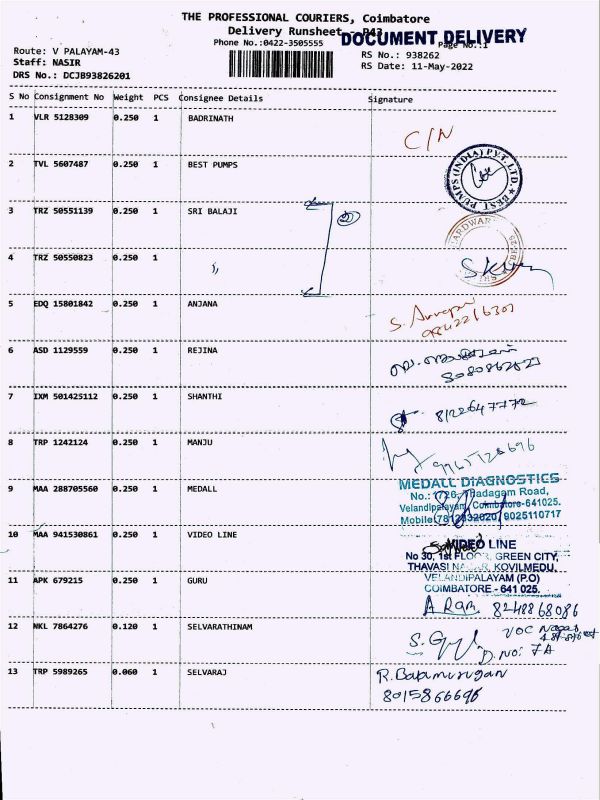 THE PROFESSIONAL COURIERS, Coimbatore
Delivery Runsheet - P43
DOCUMENT DELIVERY
Phone No.:0422-3505555
Page No.:1
Route: V PALAYAM-43
RS No.: 938262
Staff: NASIR
RS Date: 11-May-2022
DRS No.: DCJB93826201
S No Consignment No Weight PCS Consignee Details Signature
1 VLR 5128309 0.250 1 BADRINATH
C/N
2 TVL 5607487 0.250 1 BEST PUMPS
BEST PUMPS (INDIA) PVT. LTD.
3 TRZ 50551139 0.250 1 SRI BALAJI
4 TRZ 50550823 0.250 1
5 EDQ 15801842 0.250 1 ANJANA
6 ASD 1129559 0.250 1 REJINA
7 IXM 501425112 0.250 1 SHANTHI
8122647772
8 TRP 1242124 0.250 1 MANJU
9 MAA 288705560 0.250 1 MEDALL
MEDALL DIAGNOSTICS
Thadagam Road,
Velandipalayam, Coimbatore-641025.
9025110717
10 MAA 941530861 0.250 1 VIDEO LINE
VIDEO LINE
No 30, 1st FLOOR, GREEN CITY,
THAVASI NAGAR, KOVILMEDU,
VELANDIPALAYAM (P.O)
COIMBATORE - 641 025.
11 APK 679215 0.250 1 GURU
A Ram 8248868086
12 NKL 7864276 0.120 1 SELVARATHINAM
VOC Nagar
D.No: 7A
13 TRP 5989265 0.060 1 SELVARAJ
R. Balamurugan
8015866696